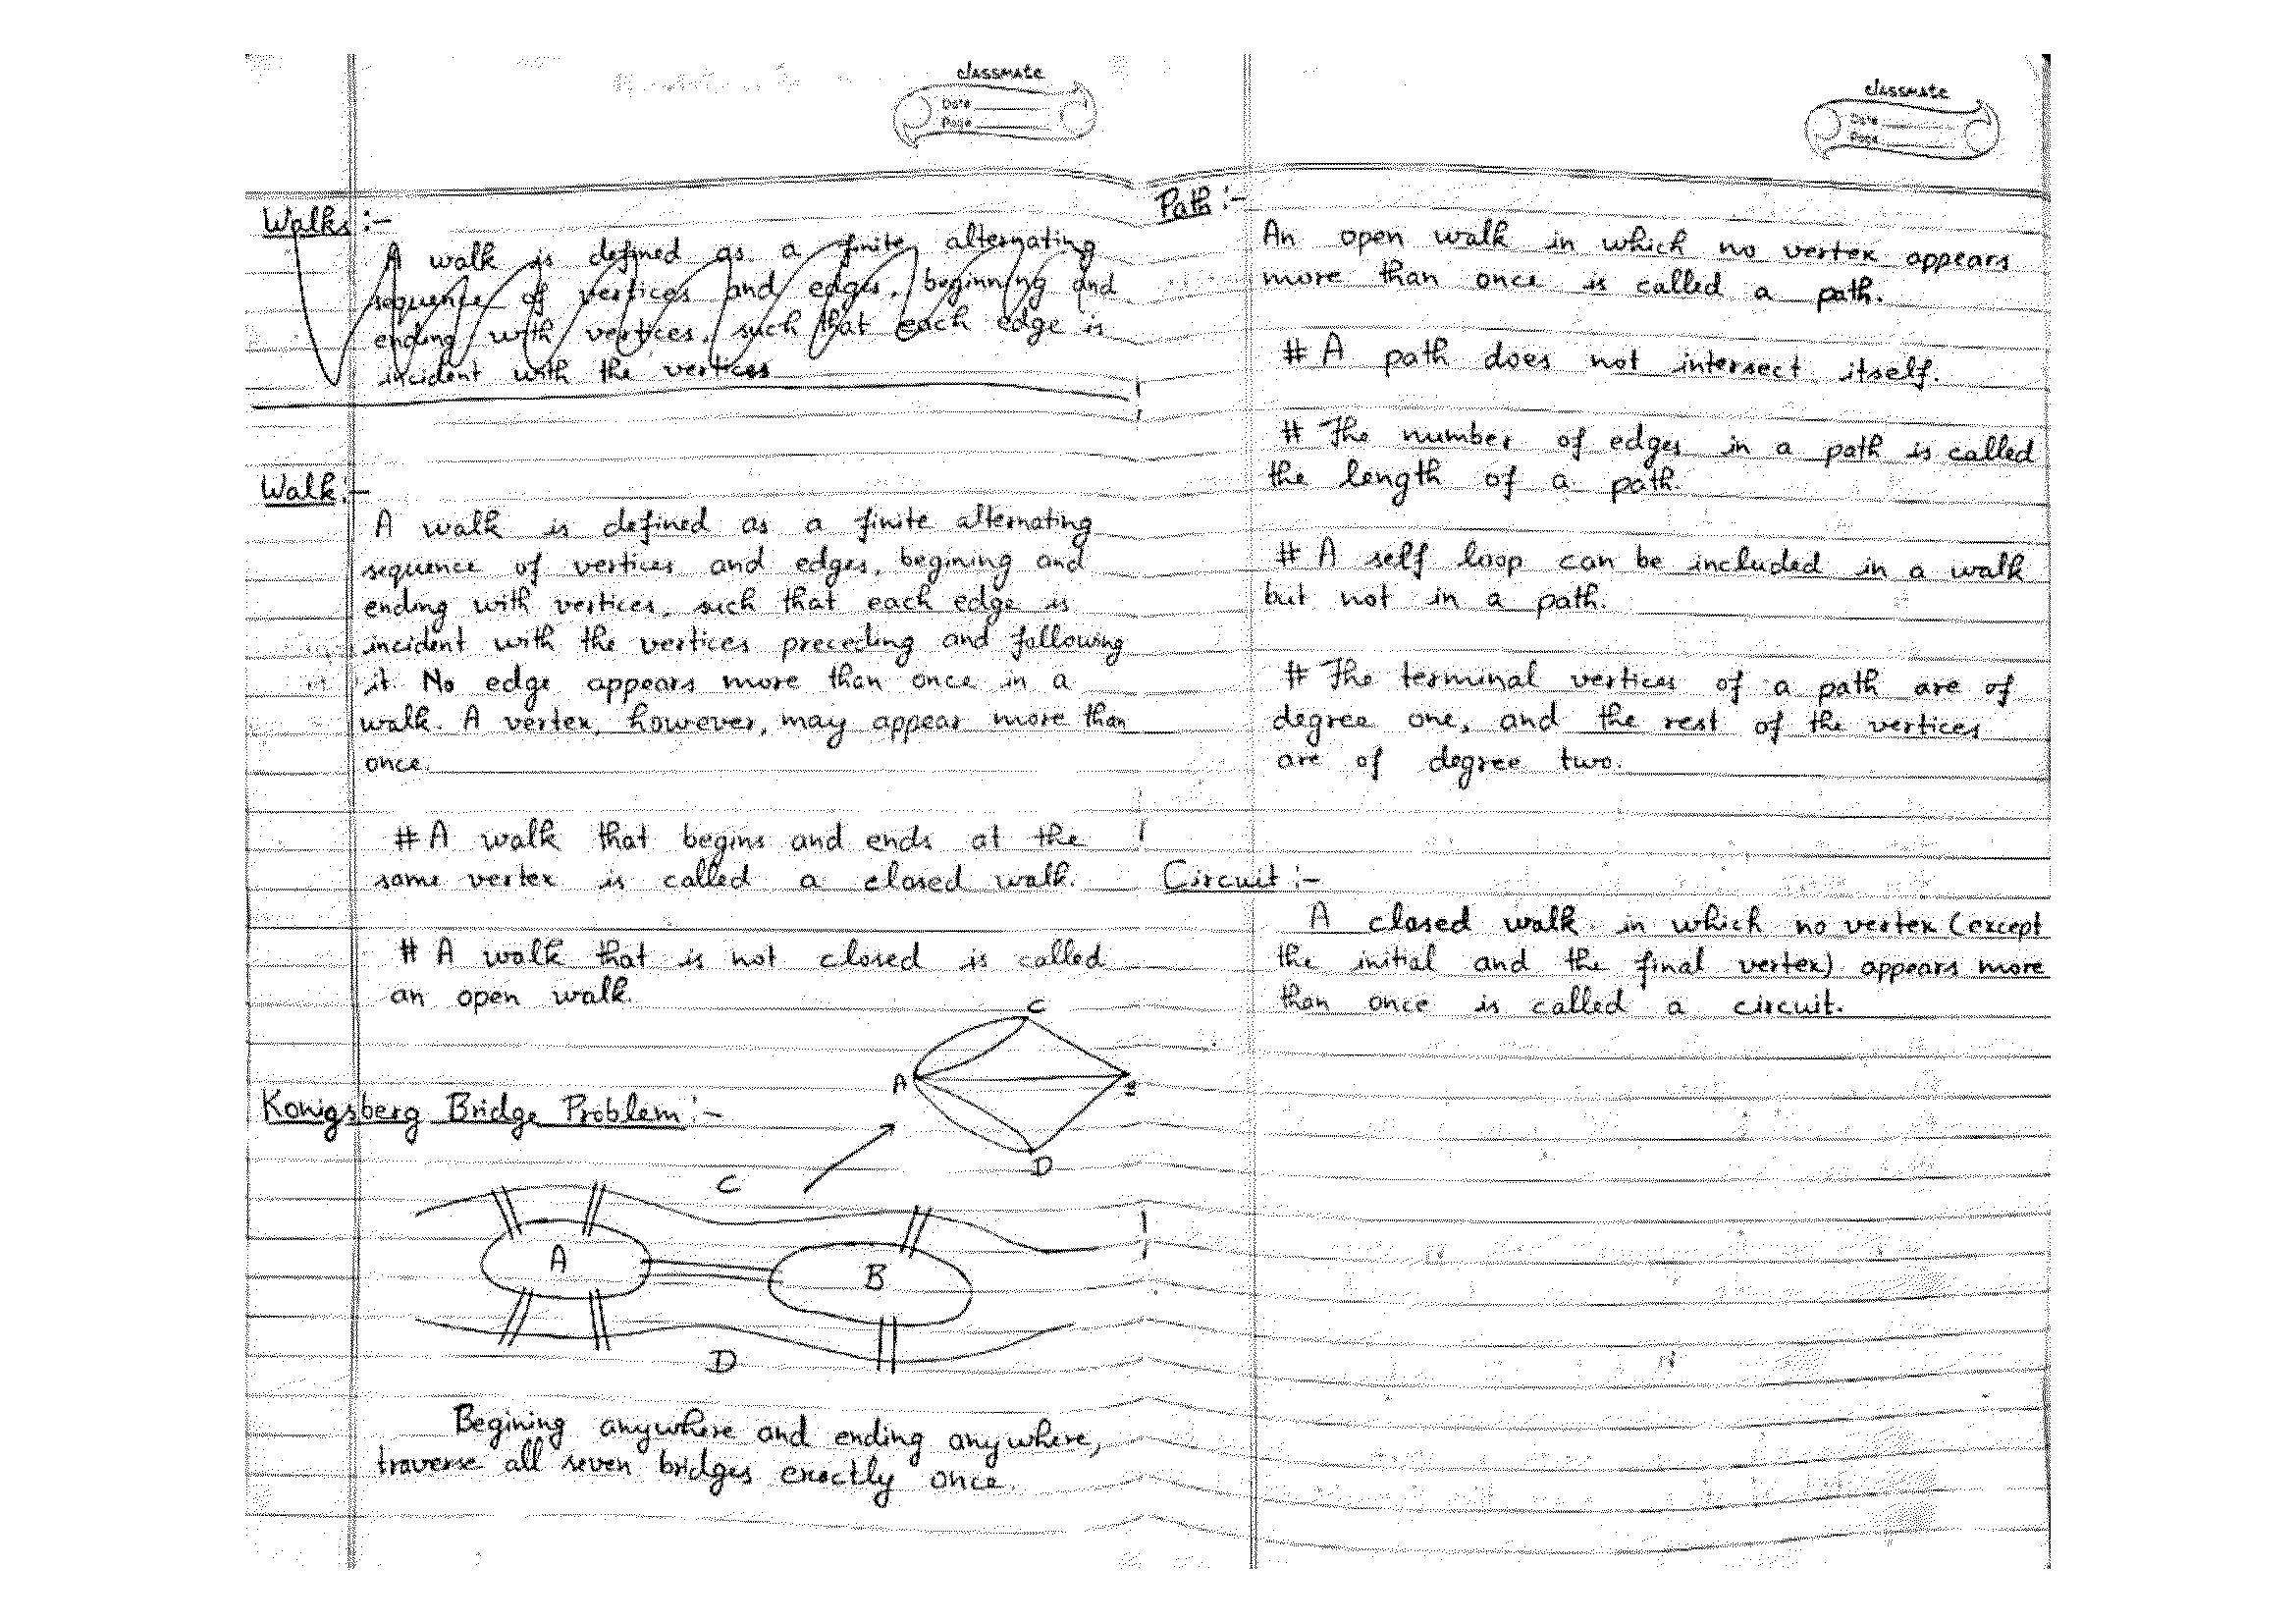 classmate
Date
Page
Walks :-
A walk is defined as a finite alternating
sequence of vertices and edges, beginning and
ending with vertices, such that each edge is
incident with the vertices
Walk :-
A walk is defined as a finite alternating
sequence of vertices and edges, begining and
ending with vertices, such that each edge is
incident with the vertices preceding and following
it. No edge appears more than once in a
walk. A vertex, however, may appear more than
once.
# A walk that begins and ends at the
same vertex is called a closed walk.
# A walk that is not closed is called
an open walk.
C
A
B
D
Konigsberg Bridge Problem :-
C
A
B
D
Begining anywhere and ending anywhere,
traverse all seven bridges exactly once.
classmate
Date
Page
Path :-
An open walk in which no vertex appears
more than once is called a path.
# A path does not intersect itself.
# The number of edges in a path is called
the length of a path.
# A self loop can be included in a walk
but not in a path.
# The terminal vertices of a path are of
degree one, and the rest of the vertices
are of degree two.
Circuit :-
A closed walk in which no vertex (except
the initial and the final vertex) appears more
than once is called a circuit.